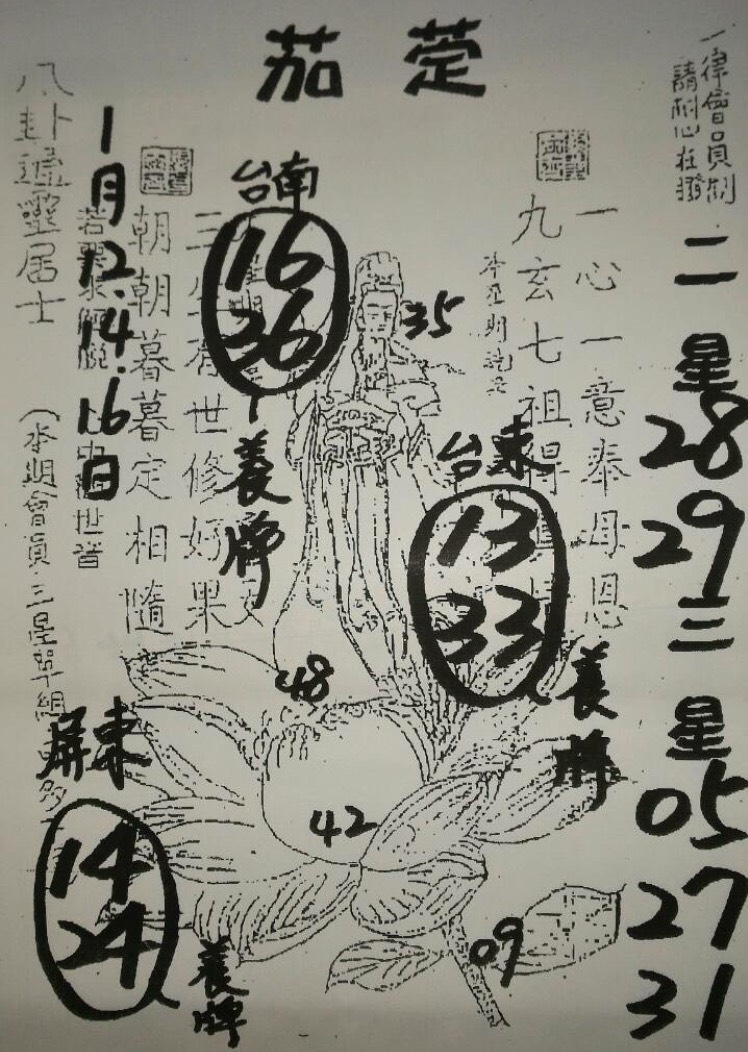 茄萣
一律會員制
請耐心在撥
二星
28
29
三星
05
27
31
一心一意奉母恩
九玄七祖得
35
台東
13
33
養牌
台南
16
36
養牌
世修好果
朝朝暮暮定相隨
1月12.14.16日
八卦
靈居士
(本期會員三星單組
48
42
09
屏東
14
24
養牌